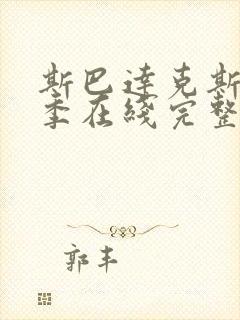 斯巴達克斯
季在綫完整
郭丰